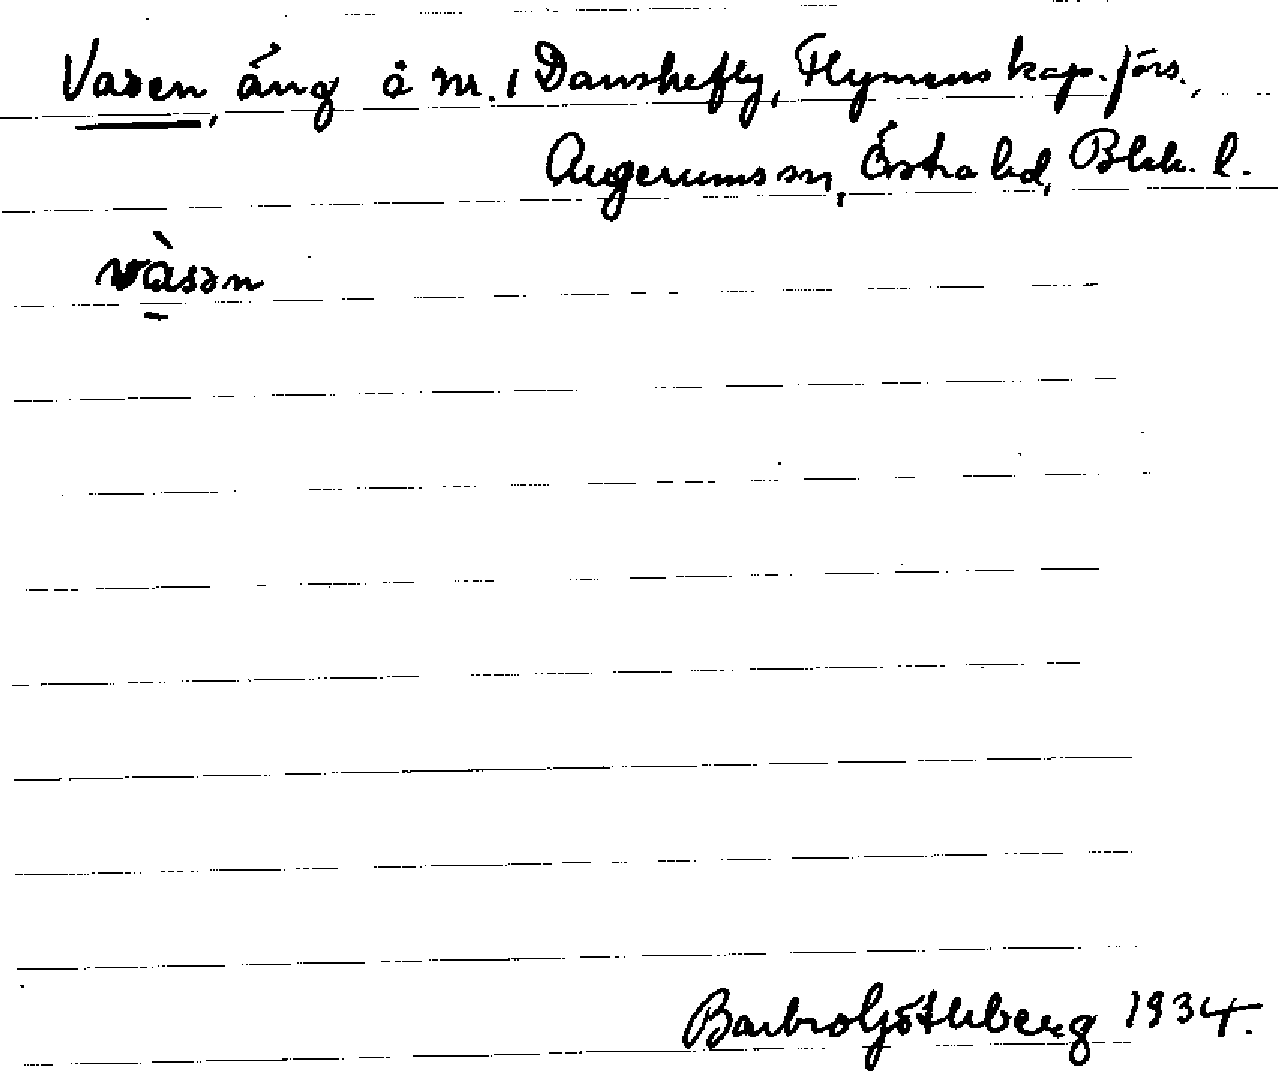 Vasen, äng å nr. 1 Danskefly, Flymens kap. förs.,
Augerums sn, Östra hd, Blek. l.
vàsən
Barbro Götheberg 1934.